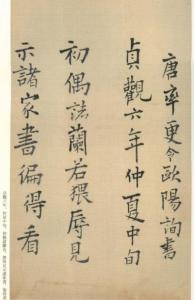 唐率更令歐陽詢書
貞觀六年仲夏中旬
初偶誌蘭若猥辱見
示諸家書編得看